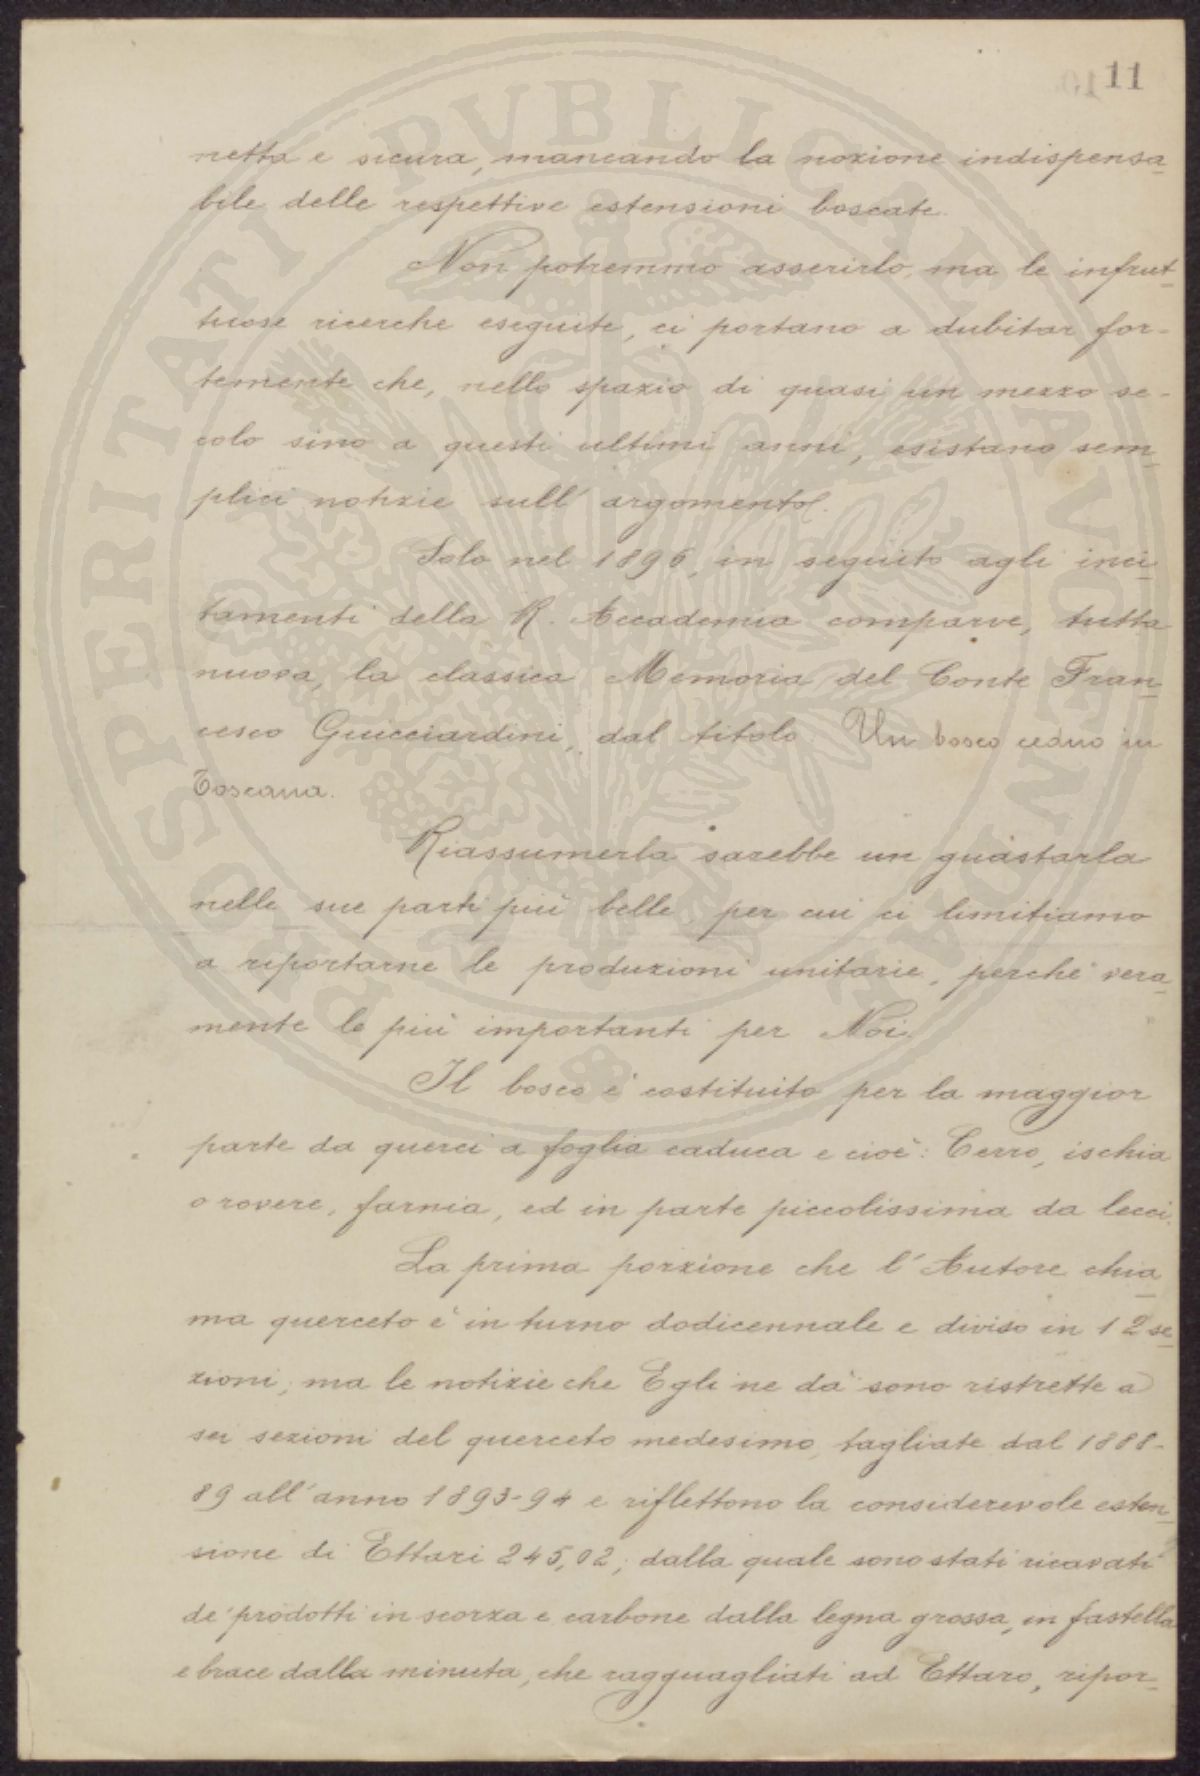 11
netta e sicura, mancando la nozione indispensa_
bile delle respettive estensioni boscate.
Non potremmo asserirlo, ma le infrut_
tuose ricerche eseguite, ci portano a dubitar for_
temente che, nello spazio di quasi un mezzo se_
colo sino a questi ultimi anni, esistano sem_
plici notizie sull'argomento.
Solo nel 1896, in seguito agli inci_
tamenti della R. Accademia comparve, tutta
nuova, la classica Memoria del Conte Fran_
cesco Guicciardini, dal titolo Un bosco ceduo in
Toscana.
Riassumerla sarebbe un guastarla
nelle sue parti più belle, per cui ci limitiamo
a riportarne le produzioni unitarie, perchè vera_
mente le più importanti per Noi.
Il bosco è costituito per la maggior
parte da querci a foglia caduca e cioè: Cerro, ischia
o rovere, farnia, ed in parte piccolissima da lecci.
La prima porzione che l'Autore chia_
ma querceto è in turno dodicennale e diviso in 12 se_
zioni; ma le notizie che Egli ne dà sono ristrette a
sei sezioni del querceto medesimo, tagliate dal 1888-
89 all'anno 1893-94 e riflettono la considerevole esten_
sione di Ettari 245,02; dalla quale sono stati ricavati
de' prodotti in scorza e carbone dalla legna grossa, in fastella
e brace dalla minuta, che ragguagliati ad Ettaro, ripor_
PROSPERITATI PVBLICAE AVGENDAE